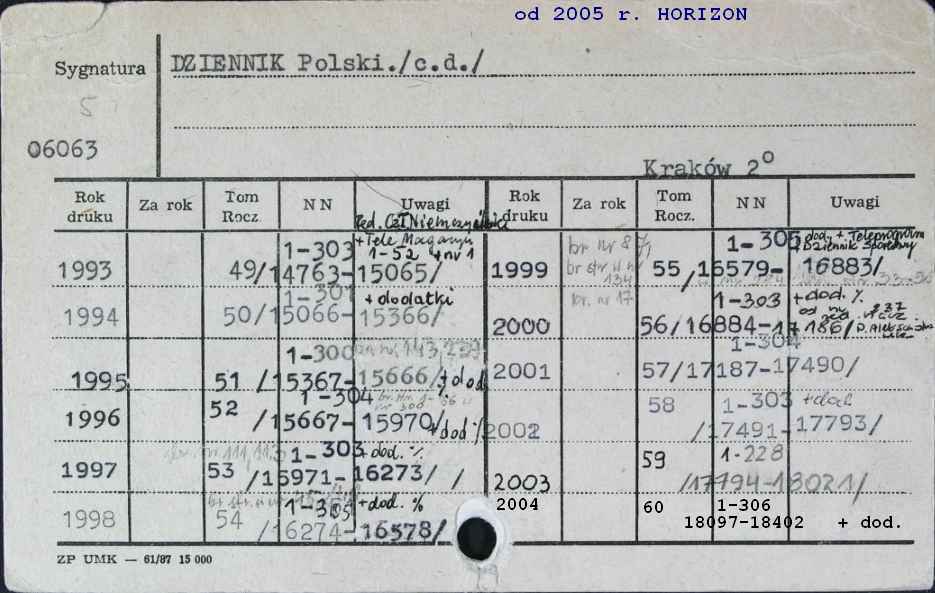 od 2005 r. HORIZON
Sygnatura
DZIENNIK Polski./c.d./
5
06063
Kraków 2°
Rok druku Za rok Tom Rocz. N N Uwagi Rok druku Za rok Tom Rocz. N N Uwagi
1-303 + Tele Magazyn
1-52 + nr 1
1993 49/14763-15065/
1994 50/15066-15366/
+ dodatki
1-300
1995 51 /15367-15666/ + dod
1-304
1996 52 /15667-15970/ + dod %
1-303 + dod. %
1997 53 /15971-16273/ /
+ dod. %
1998 54 /16274-16578/
1-305 dod. + Teleprogram
Dziennik Sportowy
1999 55 /16579-16883/
br nr 17
1-303 + dod. %
2000 56/16884-17186/
1-304
2001 57/17187-17490/
1-303 + dod
2002 58 /17491-17793/
1-228
2003 59 /17794-18021/
2004 60 1-306
18097-18402 + dod.
ZP UMK — 61/87 15 000